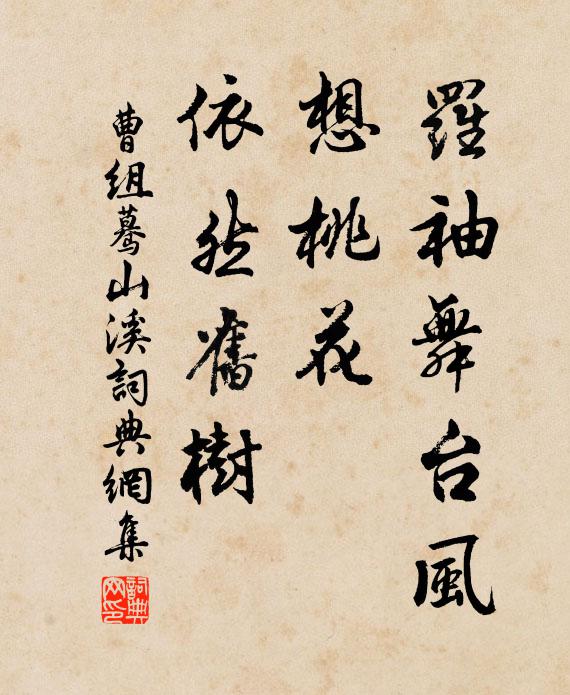 羅袖舞台風
想桃花
依然舊樹
曹組驀山溪詞典網集
詞典網印